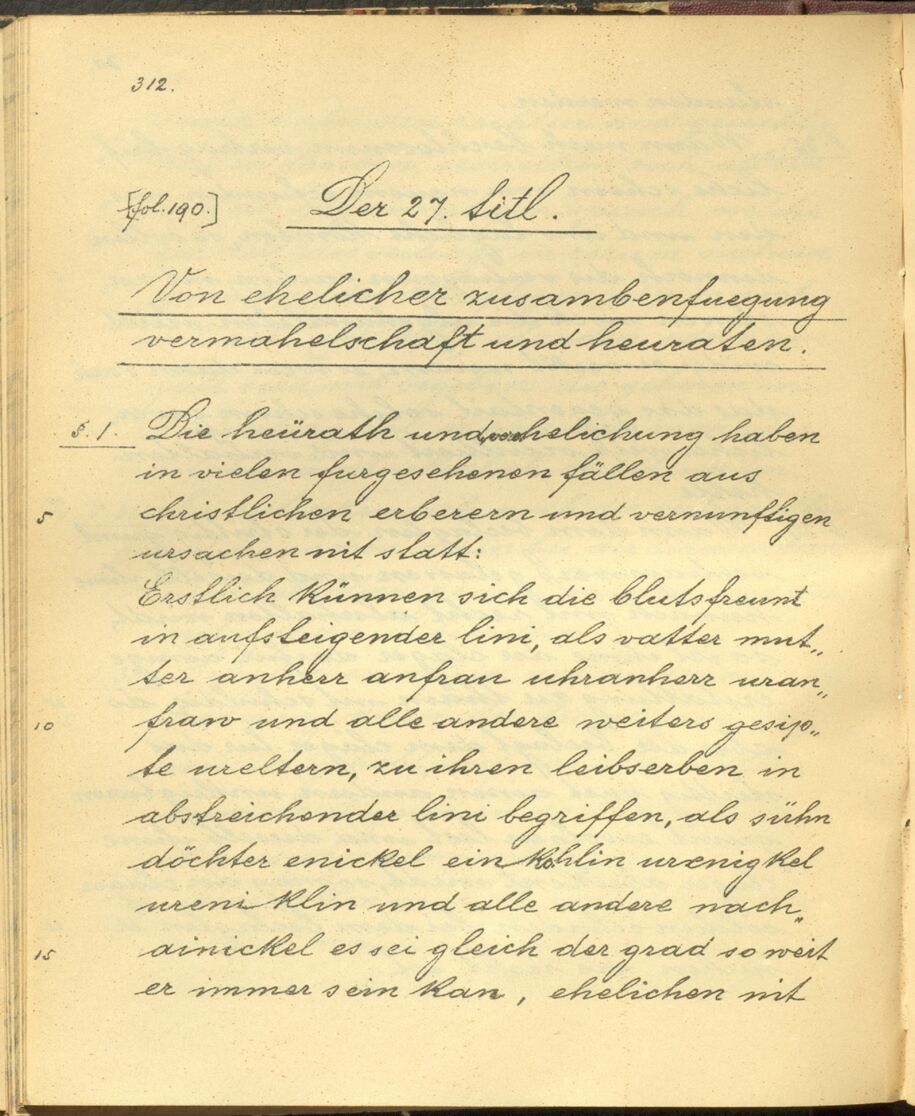 312.
[fol. 190.] Der 27. titl.
Von ehelicher zusambenfuegung
vermahelschaft und heuraten.
§. 1. Die heürath und verehelichung haben
in vielen furgesehenen fällen aus
5 christlichen erberern und vernunftigen
ursachen nit statt:
Erstlich künnen sich die blutsfreunt
in aufsteigender lini, als vatter mut„
ter anherr anfrau uhranherr uran„
10 fraw und alle andere weiters gesip„
te ureltern, zu ihren leibserben in
abstreichender lini begriffen, als sühn
döchter enickel ein urenigkel
ureniklin und alle andere nach„
15 ainickel es sei gleich der grad so weit
er immer sein kan, ehelichen nit